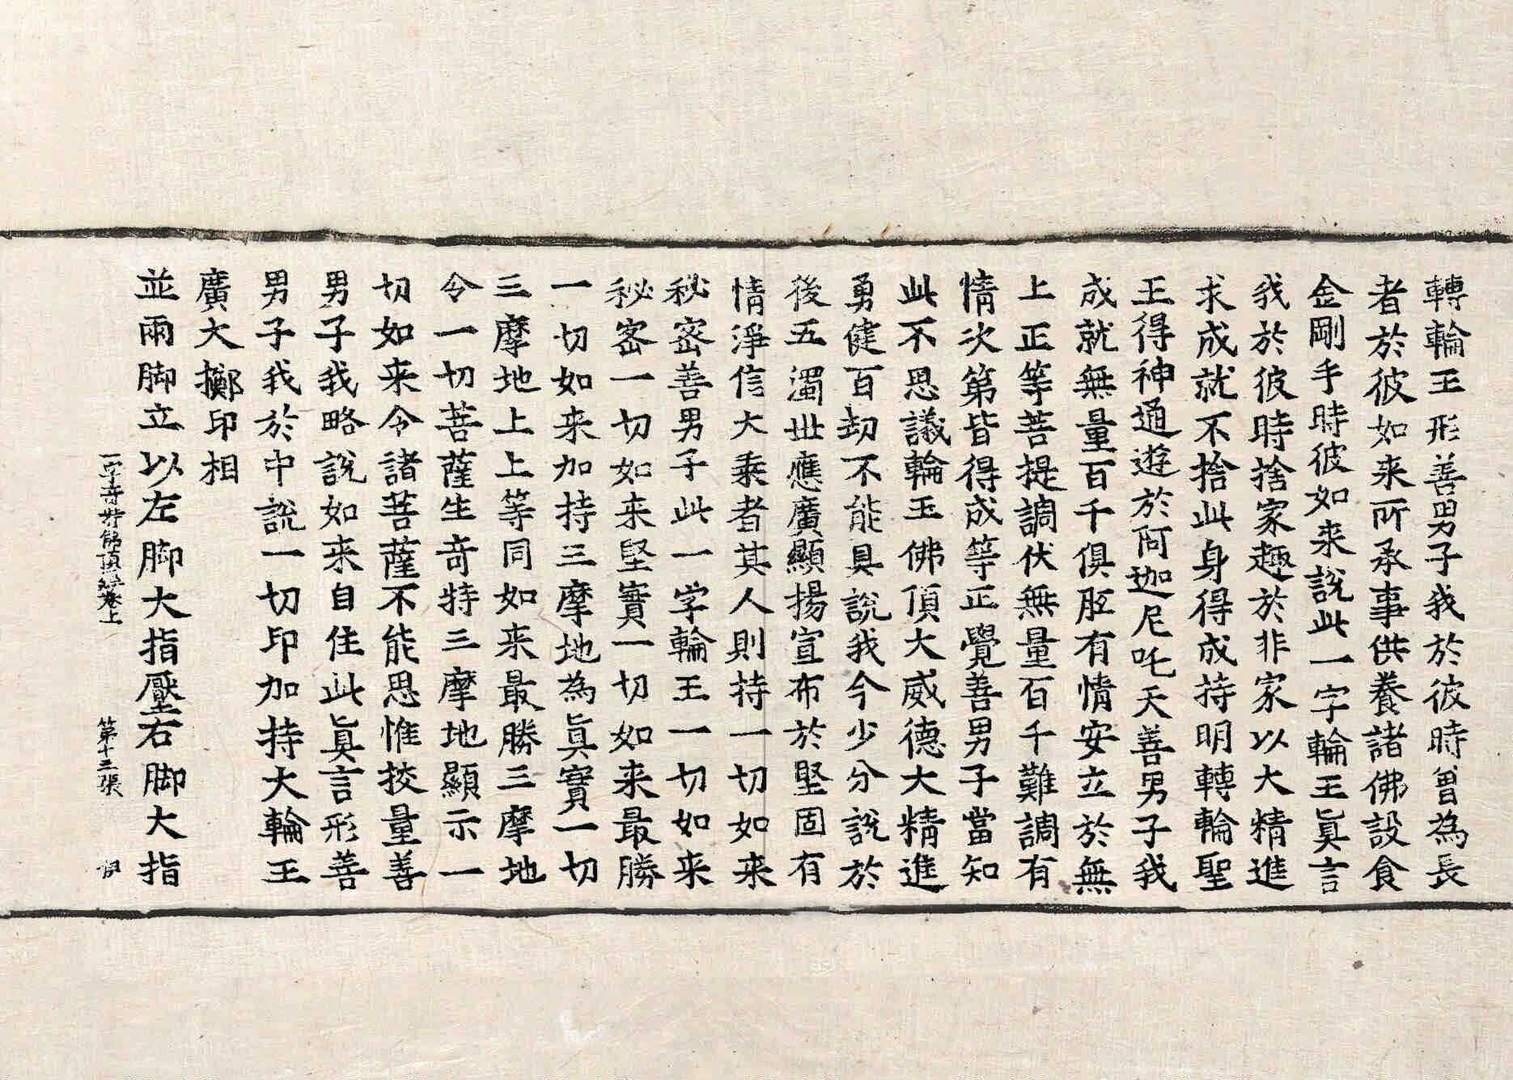 轉輪王形善男子我於彼時曽為長
者於彼如来所承事供養諸佛設食
金剛手時彼如来說此一字輪王眞言
我於彼時捨家趣於非家以大精進
求成就不捨此身得成持明轉輪聖
王得神通遊於阿迦尼吒天善男子我
成就無量百千俱胝有情安立於無
上正等菩提調伏無量百千難調有
情次第皆得成等正覺善男子當知
此不思議輪王佛頂大威德大精進
勇健百劫不能具說我今少分說於
後五濁世應廣顯揚宣布於堅固有
情淨信大乘者其人則持一切如来
秘密善男子此一字輪王一切如来
秘密一切如来堅實一切如来最勝
一切如来加持三摩地為眞實一切
三摩地上上等同如来最勝三摩地
令一切菩薩生奇特三摩地顯示一
切如来令諸菩薩不能思惟挍量善
男子我略說如来自住此眞言形善
男子我於中說一切印加持大輪王
廣大擲印相
並兩脚立以左脚大指壓右脚大指
一字奇特佛頂經卷上 第十三張 伊